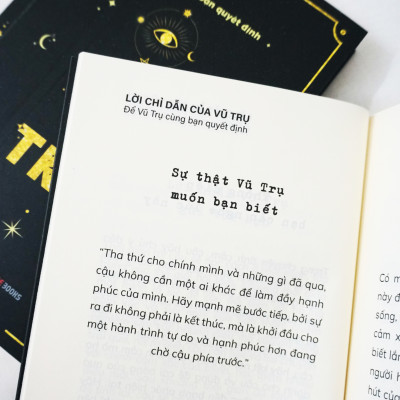 quyết định
LỜI CHỈ DẪN CỦA VŨ TRỤ
Để Vũ Trụ cùng bạn quyết định
Sự thật Vũ Trụ
muốn bạn biết
"Tha thứ cho chính mình và những gì đã qua,
cậu không cần một ai khác để làm đầy hạnh
phúc của mình. Hãy mạnh mẽ bước tiếp, bởi sự
ra đi không phải là kết thúc, mà là khởi đầu cho
một hành trình tự do và hạnh phúc hơn đang
chờ cậu phía trước."
BOOKS
Có m
này đ
sống,
cảm x
biết lắn
người h
hút của